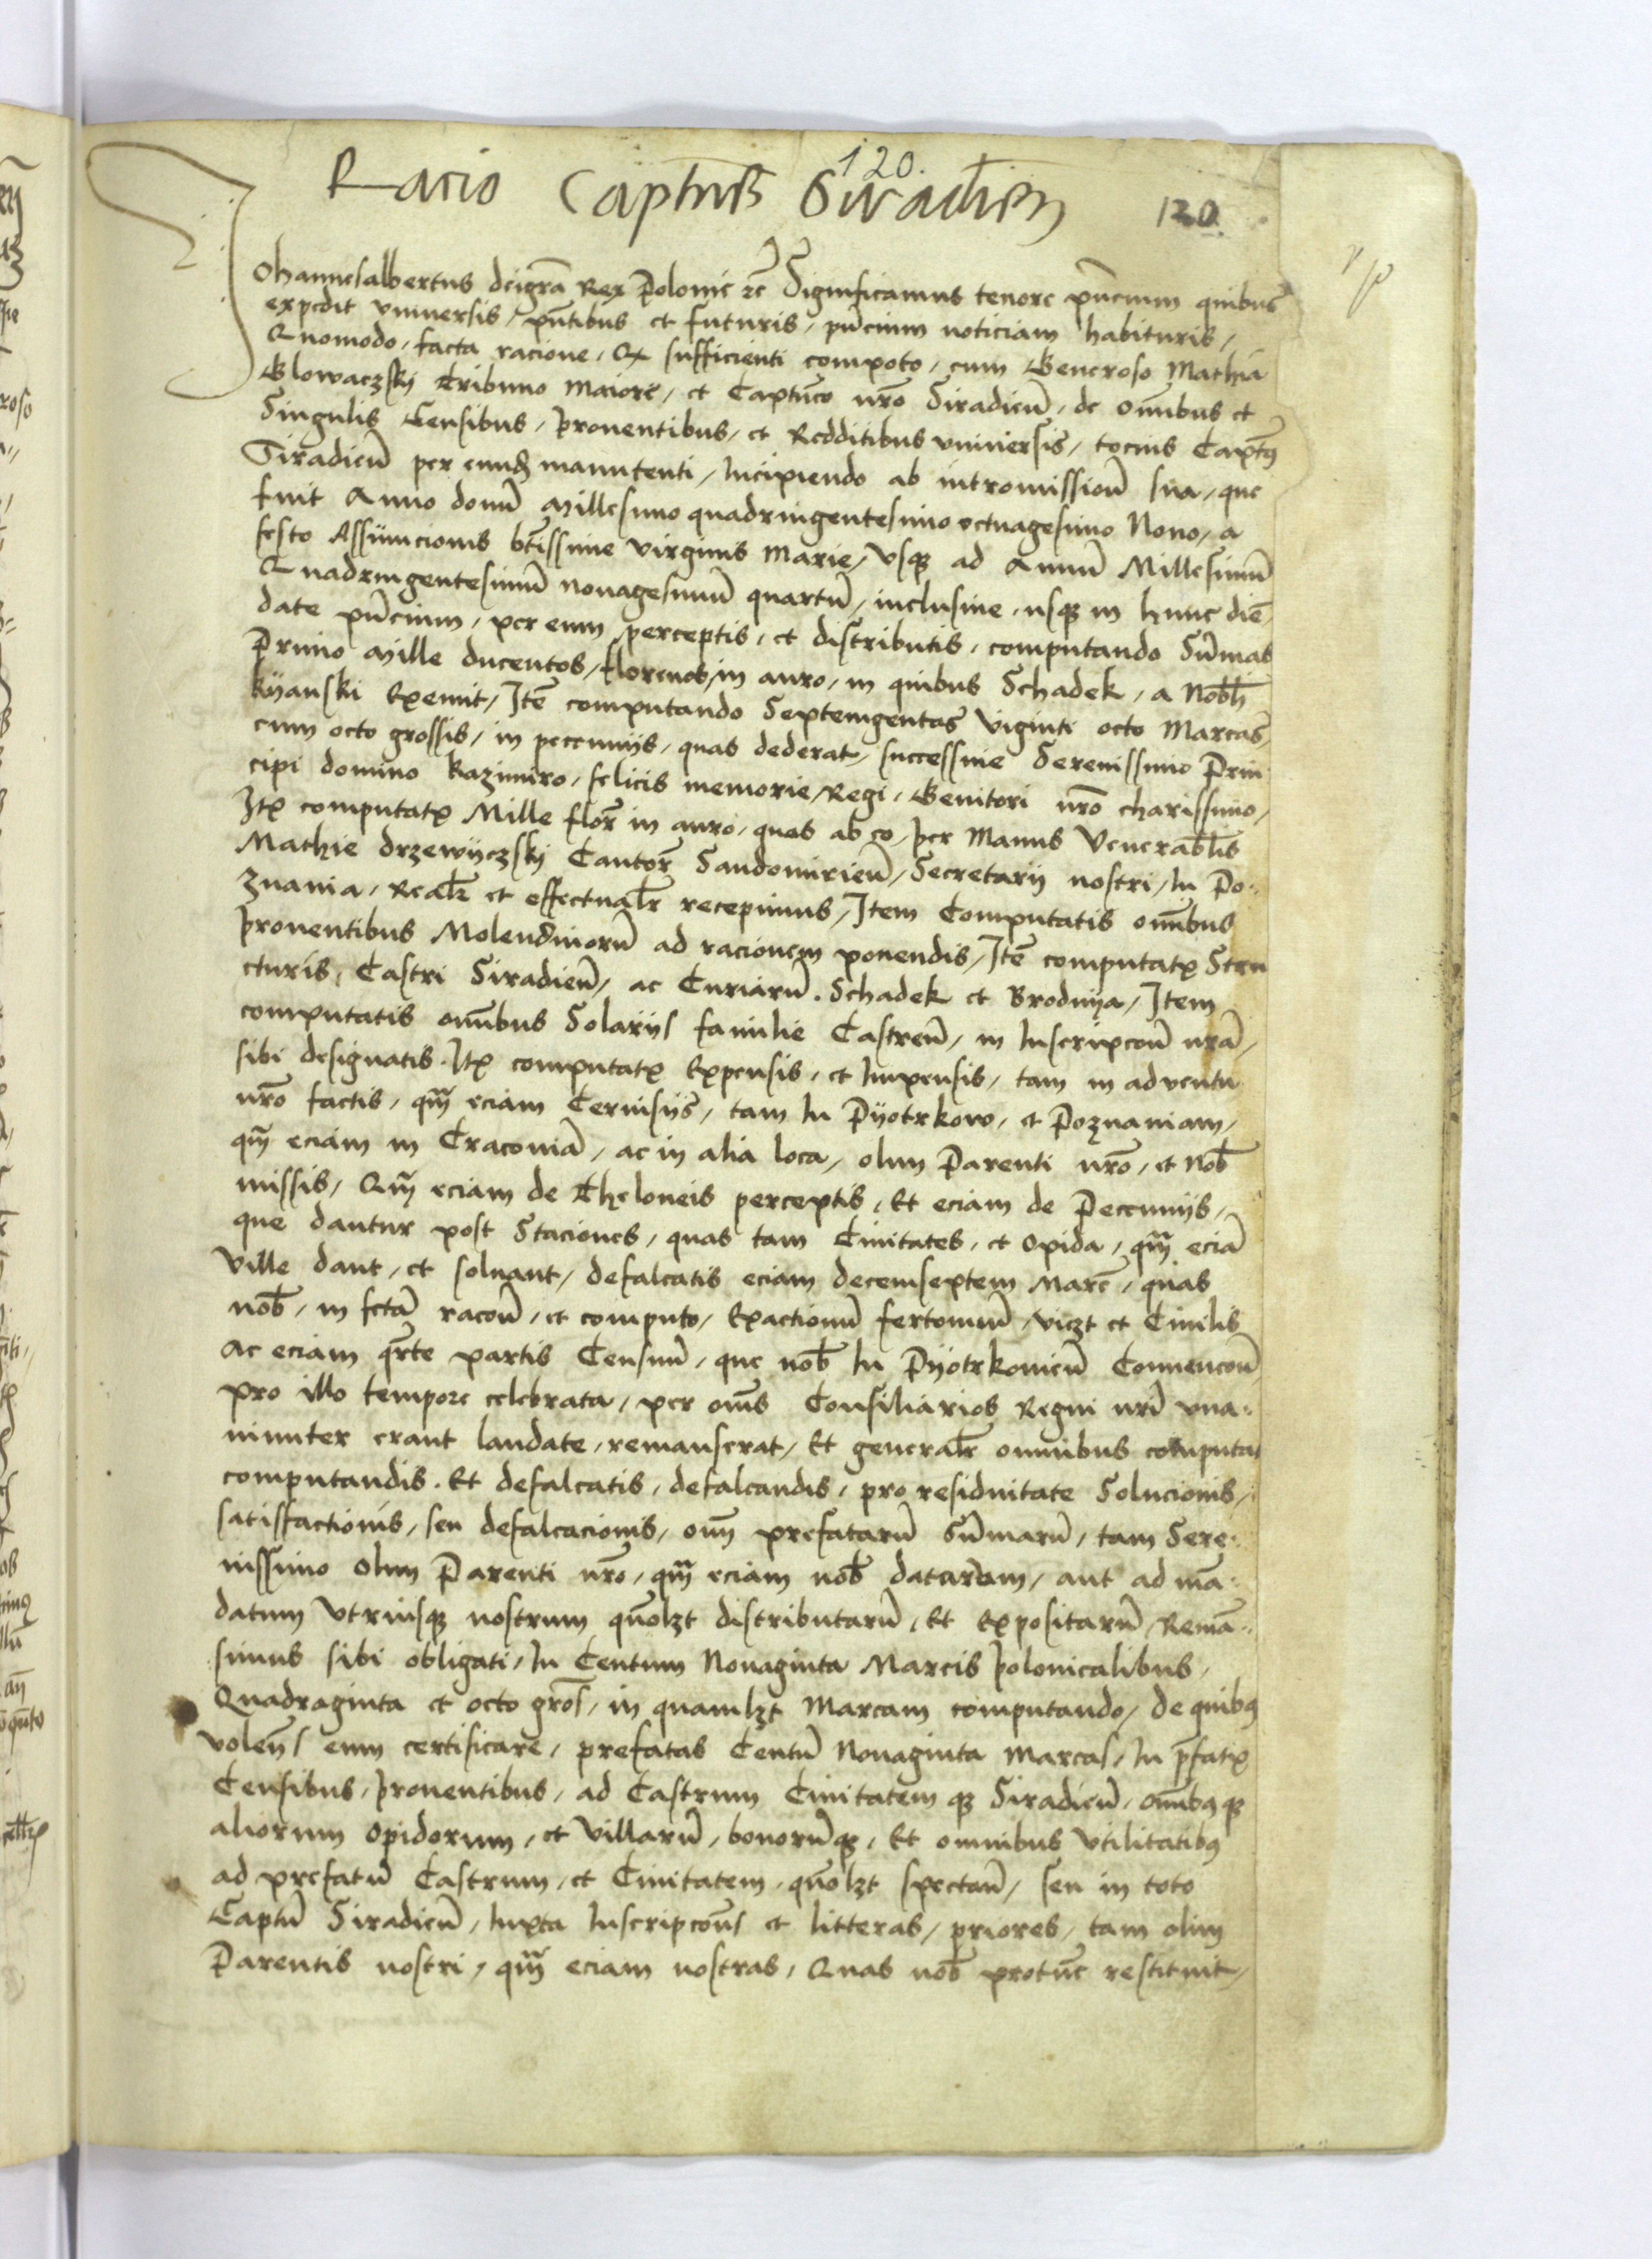 120.
Racio Captus Siradien
120
Johannesalbertus deigrā Rex Polonie ꝛc̄ Significamus tenore pn̄cium quibus
expedit vniuersis, pn̄tibus et futuris, pn̄cium noticiam habituris,
Quomodo, facta racione, Ex sufficienti compoto, cum Generoso Mathia
Glowaczskj Tribuno Maiore, et Captn̄eo nr̄o Siradien̄, de Om̄ibus et
Singulis Censibus, prouentibus, et Redditibus vniuersis, tocius Captus
Siradien̄ per eund manutenti, Incipiendo ab intromissioē sua, que
fuit Anno domī Millesimo quadringentesimo octuagesimo Nono, a
festo Assumcionis bt̄issime virginis Marie, vsqꝫ ad Annū Millesimū
Quadringentesimū nonagesimū quartū, inclusiue, usqꝫ in hunc diē
date pn̄cium, per eum perceptis, et distributis, computando Sūmas
Primo Mille ducentos, florenos, in auro, in quibus Schadek, a Nobl̄i
kyanski Exemit, Itē computando Septemgentas viginti octo Marcas,
cum octo grossis, in peccunijs, quas dederat, successiue Serenissimo Prin
cipi domino kazimiro, felicis memorie, Regi, Genitori nr̄o charissimo,
Itē computatꝭ Mille flor̄ in auro, quos ab eo, per Manus Venerabl̄is
Mathie drzewyczskj Cantor̄ Sandomirien̄, Secretarij nostri, In Po-
znania, Realr̄ et effectualr̄ recepimus, Item Computatis om̄ibus
prouentibus Molendinorū ad racionem ponendis, Itē computatꝭ Stru
cturis, Castri Siradien̄, ac Curiarū. Schadek et Brodnya, Item
computatis om̄ibus Solarijs familie Castren̄, in Inscripcoē nr̄ā,
sibi designatis. Itē computatꝭ Expensis, et Impensis, tam in aduentu
nr̄o factis, qm̄ eciam Ceruisijs, tam In Pyotrkow, et Poznaniam,
qm̄ eciam in Cracouiā, ac in alia loca, olim Parenti nr̄o, et Nob̄
missis, Qm̄ eciam de Theloneis perceptis, Et eciam de Peccunijs,
que dantur post Staciones, quas tam Ciuitates, et Opida, qm̄ eciā
Ville dant, et soluant, defalcatis eciam decemseptem Marc̄, quas
nob̄, in fctā racoē, et computo, Exactionū fertonum, viꝫt et Ciuilis
Ac eciam qr̄te partis Censuū, que nob̄ In Pyotrkouien̄ Conuencoē
pro illo tempore celebrata, per om̄s Consiliarios Regni nr̄i vna-
nimiter erant laudate, remanserat, Et generalr̄ omnibus computat
computandis. Et defalcatis, defalcandis, pro residuitate Solucionis,
satisfactionis, seu defalcacionis, om̄ prefatarū Sūmarū, tam Sere-
nissimo Olim Parenti nr̄o, qm̄ eciam nob̄ datarum, aut ad mā-
datum Vtriusqꝫ nostrum quōlꝫt distributarū, Et Expositarū, Remā-
simus sibi obligati, In Centum Nonaginta Marcis polonicalibus,
Quadraginta et octo gros̄, in quamlꝫt Marcam computando, de quibꝰ
volen̄s eum certificare, prefatas Centū Nonaginta Marcas, In p̄fatꝭ
Censibus, prouentibus, ad Castrum Ciuitatem qꝫ Siradien̄, Om̄ibꝰqꝫ
aliorum Opidorum, et Villarū, bonorūqꝫ, Et omnibus Vtilitatibꝰ
ad prefatū Castrum, et Ciuitatem, quōlꝫt spectan̄, seu in toto
Captū Siradien̄, Iuxta Inscripcoēs et litteras, priores, tam olim
Parentis nostri, qm̄ eciam nostras, Quas nob̄ protūc restituit,